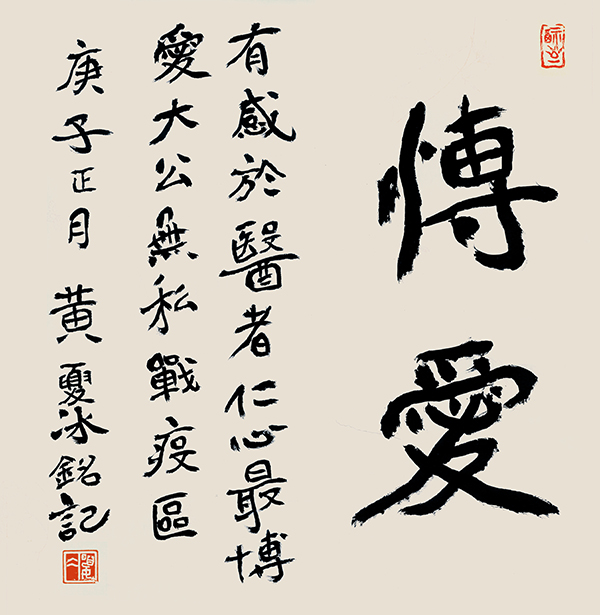 博愛
有感於醫者仁心最博
愛大公無私戰疫區
庚子正月 黃夏冰銘記